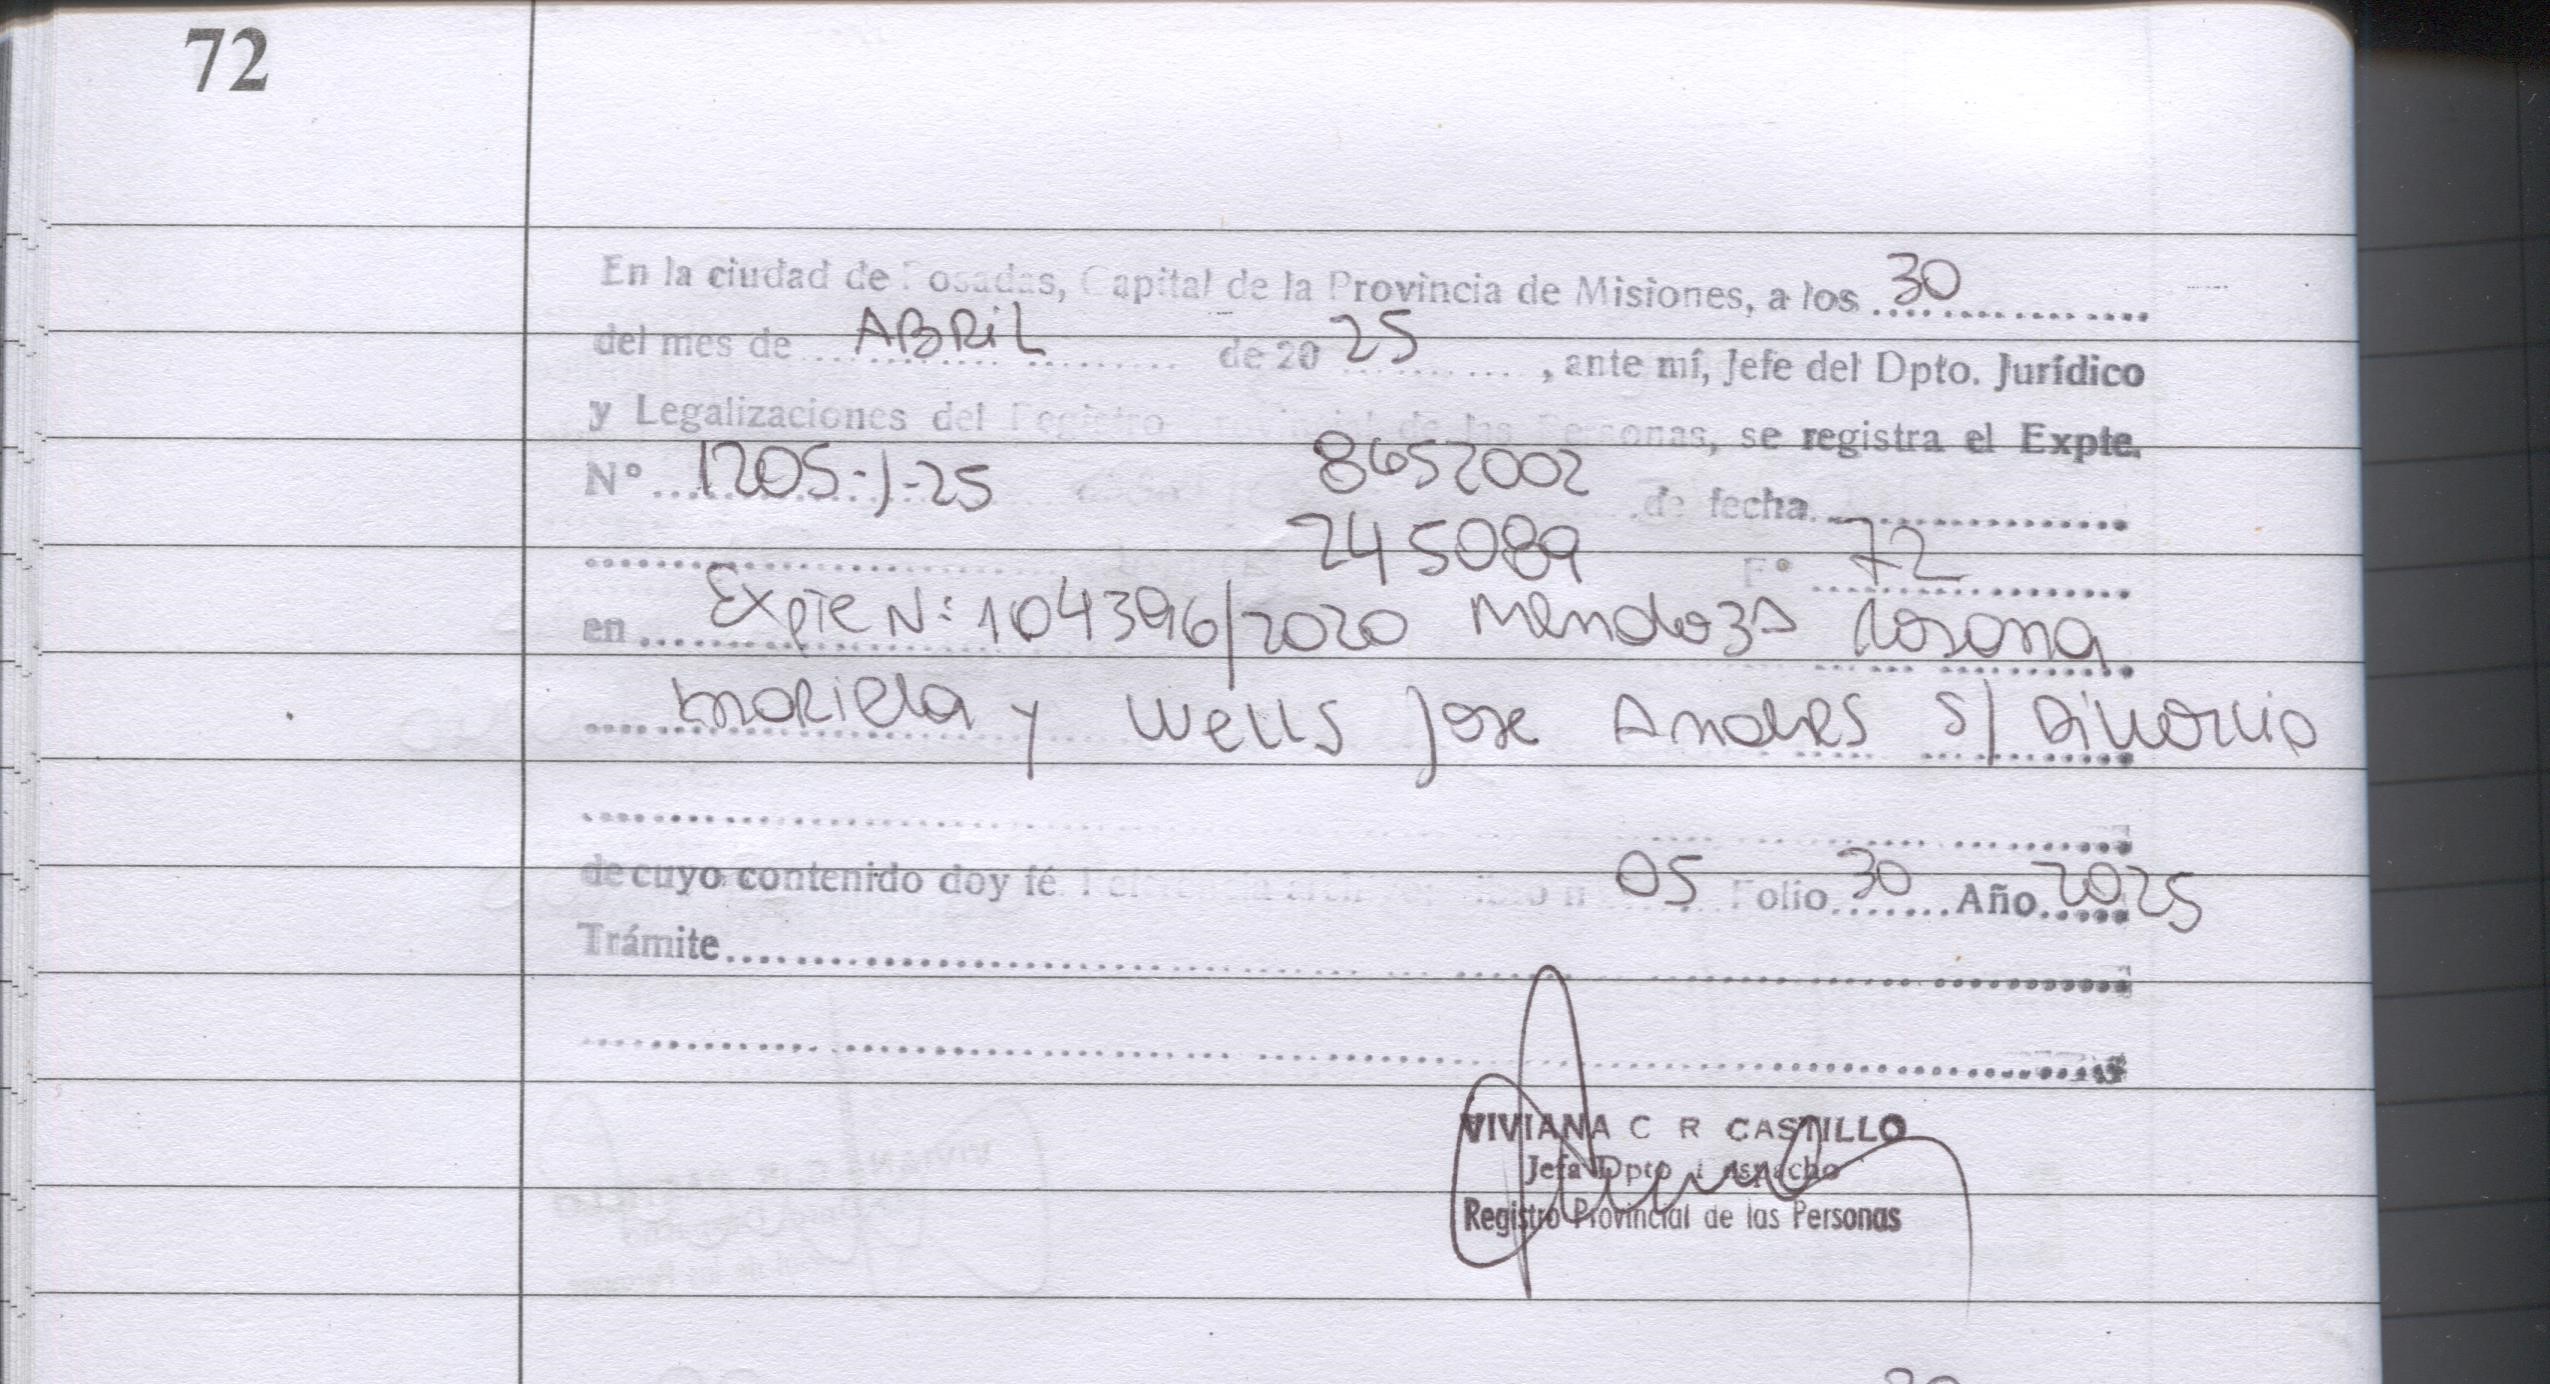 72
En la ciudad de Posadas, Capital de la Provincia de Misiones, a los 30
del mes de ABRiL de 2025, ante mí, Jefe del Dpto. Jurídico
y Legalizaciones del Registro de las Personas, se registra el Expte.
N° 1205-J-25 8652002 de fecha
245089 F° 72
en Expte N: 104396/2020 Mendoza Rosana
Mariela y Wells Jose Andres S/ Divorcio
de cuyo contenido doy fé. 05 Folio 30 Año 2025
Trámite
VIVIANA C R CASTILLO
Jefa Dpto Despacho
Registro Provincial de las Personas